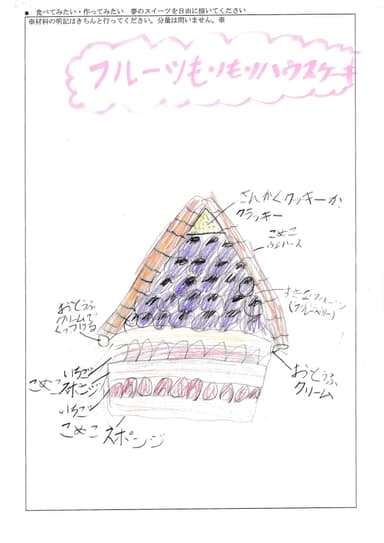 ■ 食べてみたい・作ってみたい　夢のスイーツを自由に描いてください
※材料の明記はきちんと行ってください。分量は問いません。※
フルーツもりもりハウスケーキ
さんかくクッキーか
クラッキー
こめこ
すきなフルーツ
(ブルーベリー)
おとうふ
クリームで
くっつける
いちご
こめこスポンジ
いちご
こめこ スポンジ
おとうふ
クリーム